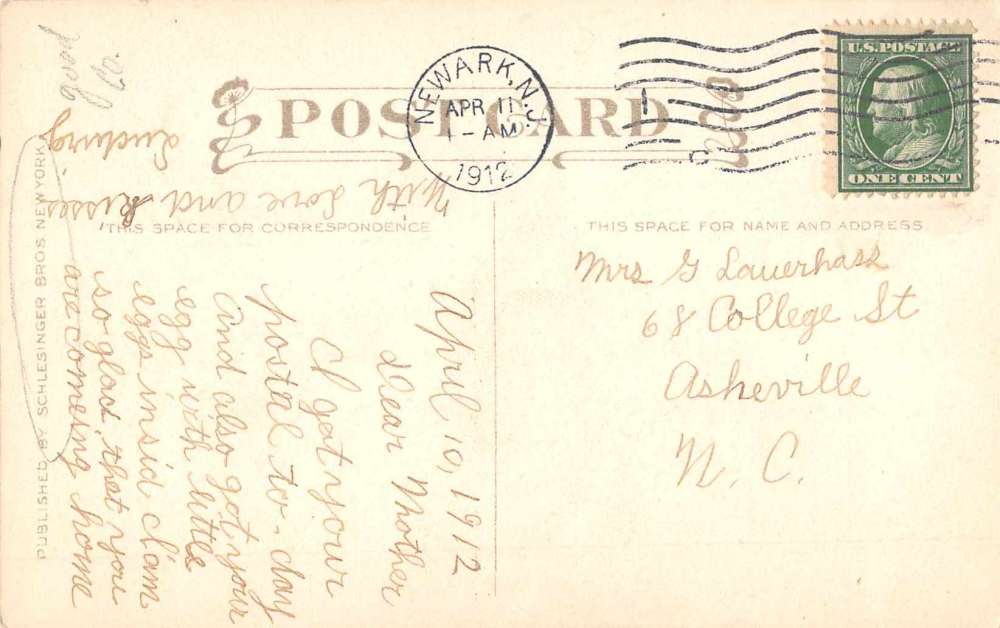 POSTCARD
NEWARK, N.J.
APR 11
1-AM
1912
U.S. POSTAGE
ONE CENT
THIS SPACE FOR CORRESPONDENCE
THIS SPACE FOR NAME AND ADDRESS
Mrs G Lauerhass
68 College St
Asheville
N. C.
April 10, 1912
Dear Mother
I got your
postal to-day
and also got your
egg with little
eggs insid I'am
so glad that you
are comeing home
With love and kisses
Ludwig
PUBLISHED BY SCHLESINGER BROS. NEW YORK